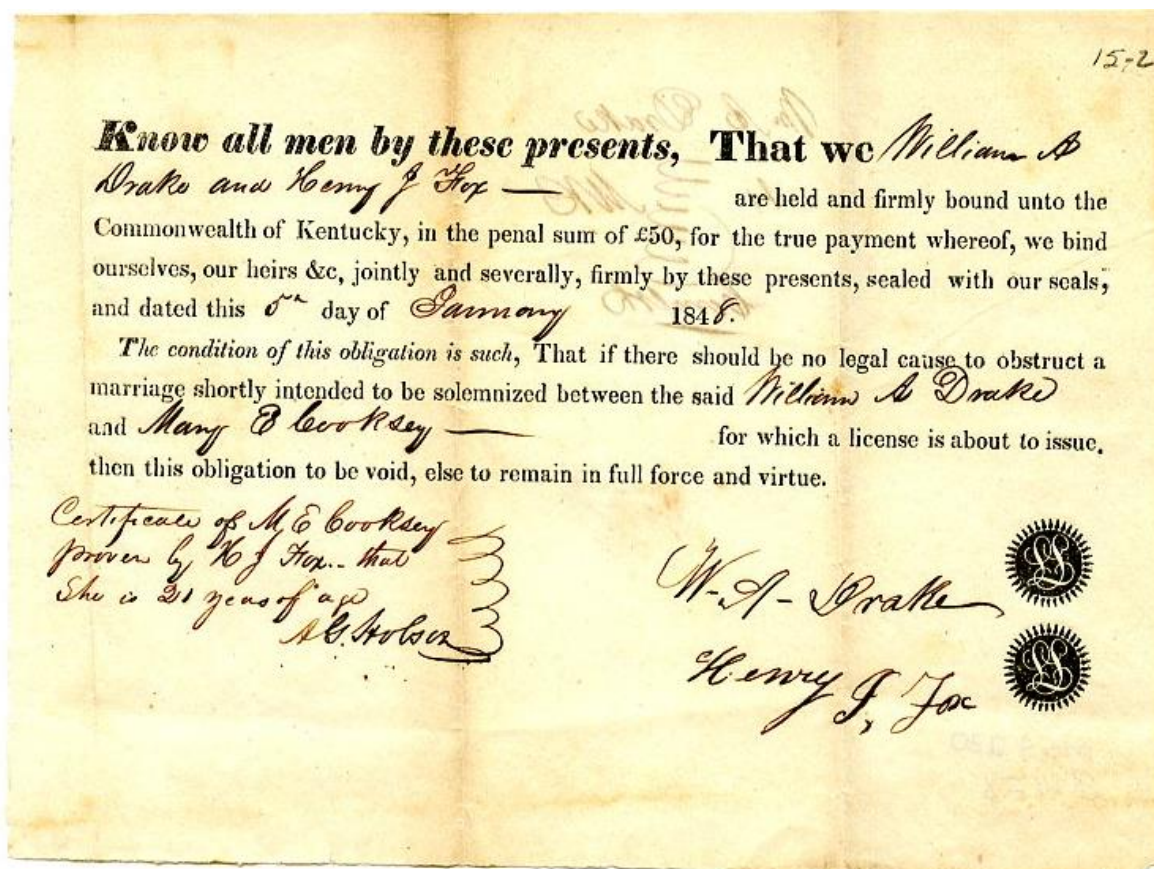 15-2
Know all men by these presents, That we William A
Drake and Henry J Fox — are held and firmly bound unto the
Commonwealth of Kentucky, in the penal sum of £50, for the true payment whereof, we bind
ourselves, our heirs &c, jointly and severally, firmly by these presents, sealed with our seals,
and dated this 5th day of January 1848.
The condition of this obligation is such, That if there should be no legal cause to obstruct a
marriage shortly intended to be solemnized between the said William A Drake
and Mary E Cooksey — for which a license is about to issue,
then this obligation to be void, else to remain in full force and virtue.
Certificate of M E Cooksey
proven by H J Fox.. that
She is 21 years of age
A G. Hobson
W-A-Drake
Henry J, Fox